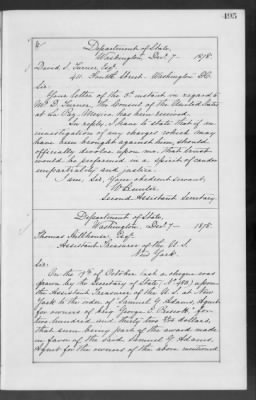 495
Department of State,
Washington, Decr 7- 1878.
David S. Turner, Esqr
411 Fourth Street - Washington D.C.
Sir:
Your letter of the 3d instant in regard to
Mr D. Turner, the Consul of the United States
at La Paz, Mexico has been received.
In reply, I have to state that if an
investigation of any charges which may
have been brought against him, should
officially devolve upon me, that trust
would be performed in a spirit of candor
impartiality and justice.
I am, Sir, Your obedient servant,
W Hunter
Second Assistant Secretary.
Department of State,
Washington, Decr 7- 1878.
Thomas Hillhouse, Esqr
Assistant Treasurer of the U.S.
New York.
Sir:
On the 19th of October last a cheque was
drawn by the Secretary of State (No 480) upon
the Assistant Treasurer of the U.S. at New
York to the order of Samuel G Adams, Agent
for owners of brig "George E. Prescott," for
two hundred and thirty two dollars,
that sum being part of the award made
in favor of the said Samuel G. Adams,
Agent for the owners of the above mentioned